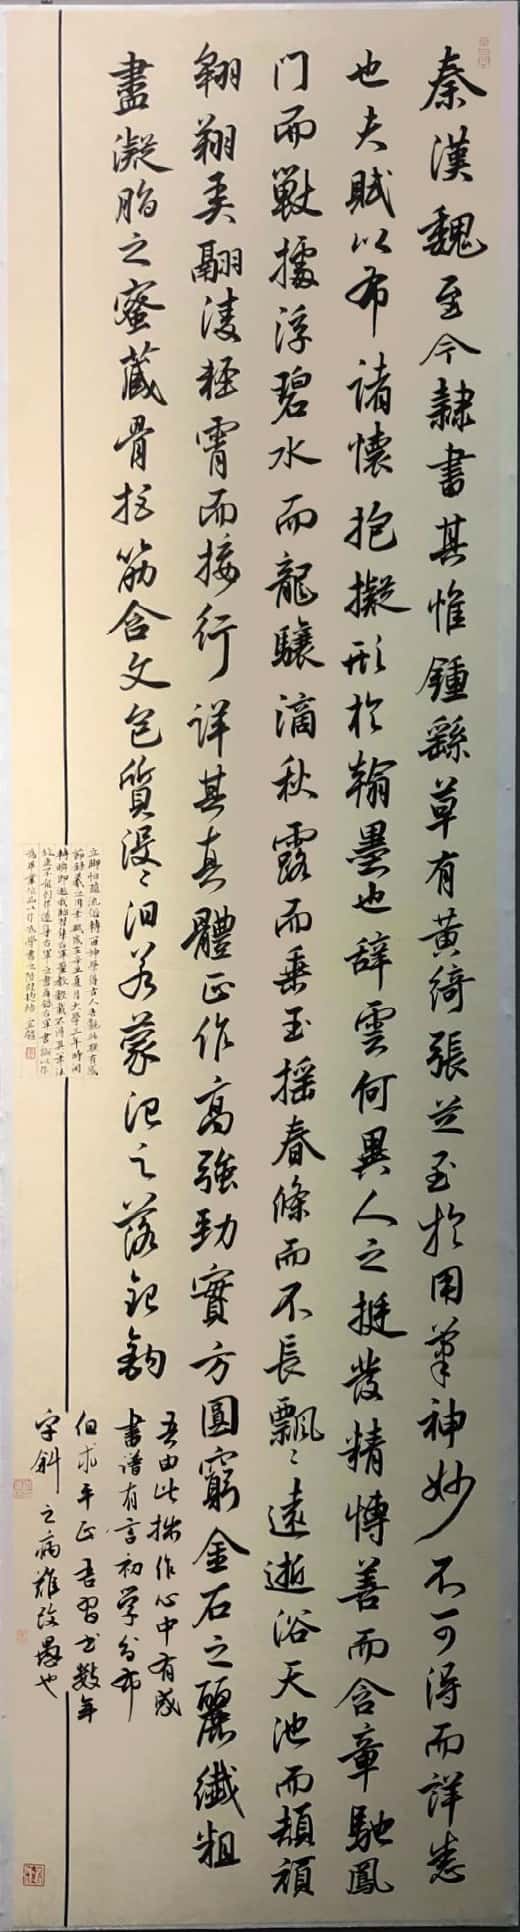 秦漢魏至今隷書其惟鍾繇草有黃綺張芝至於用筆神妙不可得而詳悉
也夫賦以布諸懷抱擬形於翰墨也辭雲何異人之挺發精愽善而含章馳鳳
门而獸據浮碧水而龍驤滴秋露而垂玉摇春條而不長飄〻遠逝浴天池而頡頏
翱翔弄翮凌輕霄而接行詳其真體正作高強勁實方圓窮金石之麗纖粗
盡凝脂之蜜藏骨抱筋含文包質没〻汩若蒙汜之落銀鈎
吾由此拙作心中有感
書谱有言初学分布
但求平正吾習书数年
字斜之病难改愚也